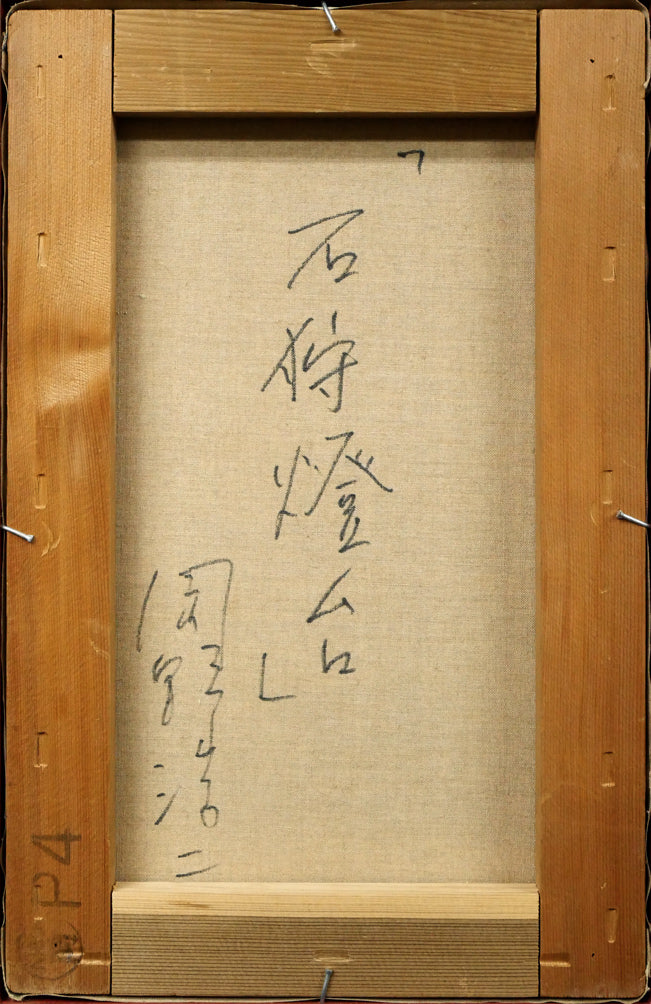 「石狩燈台」
岡野浩二
P4